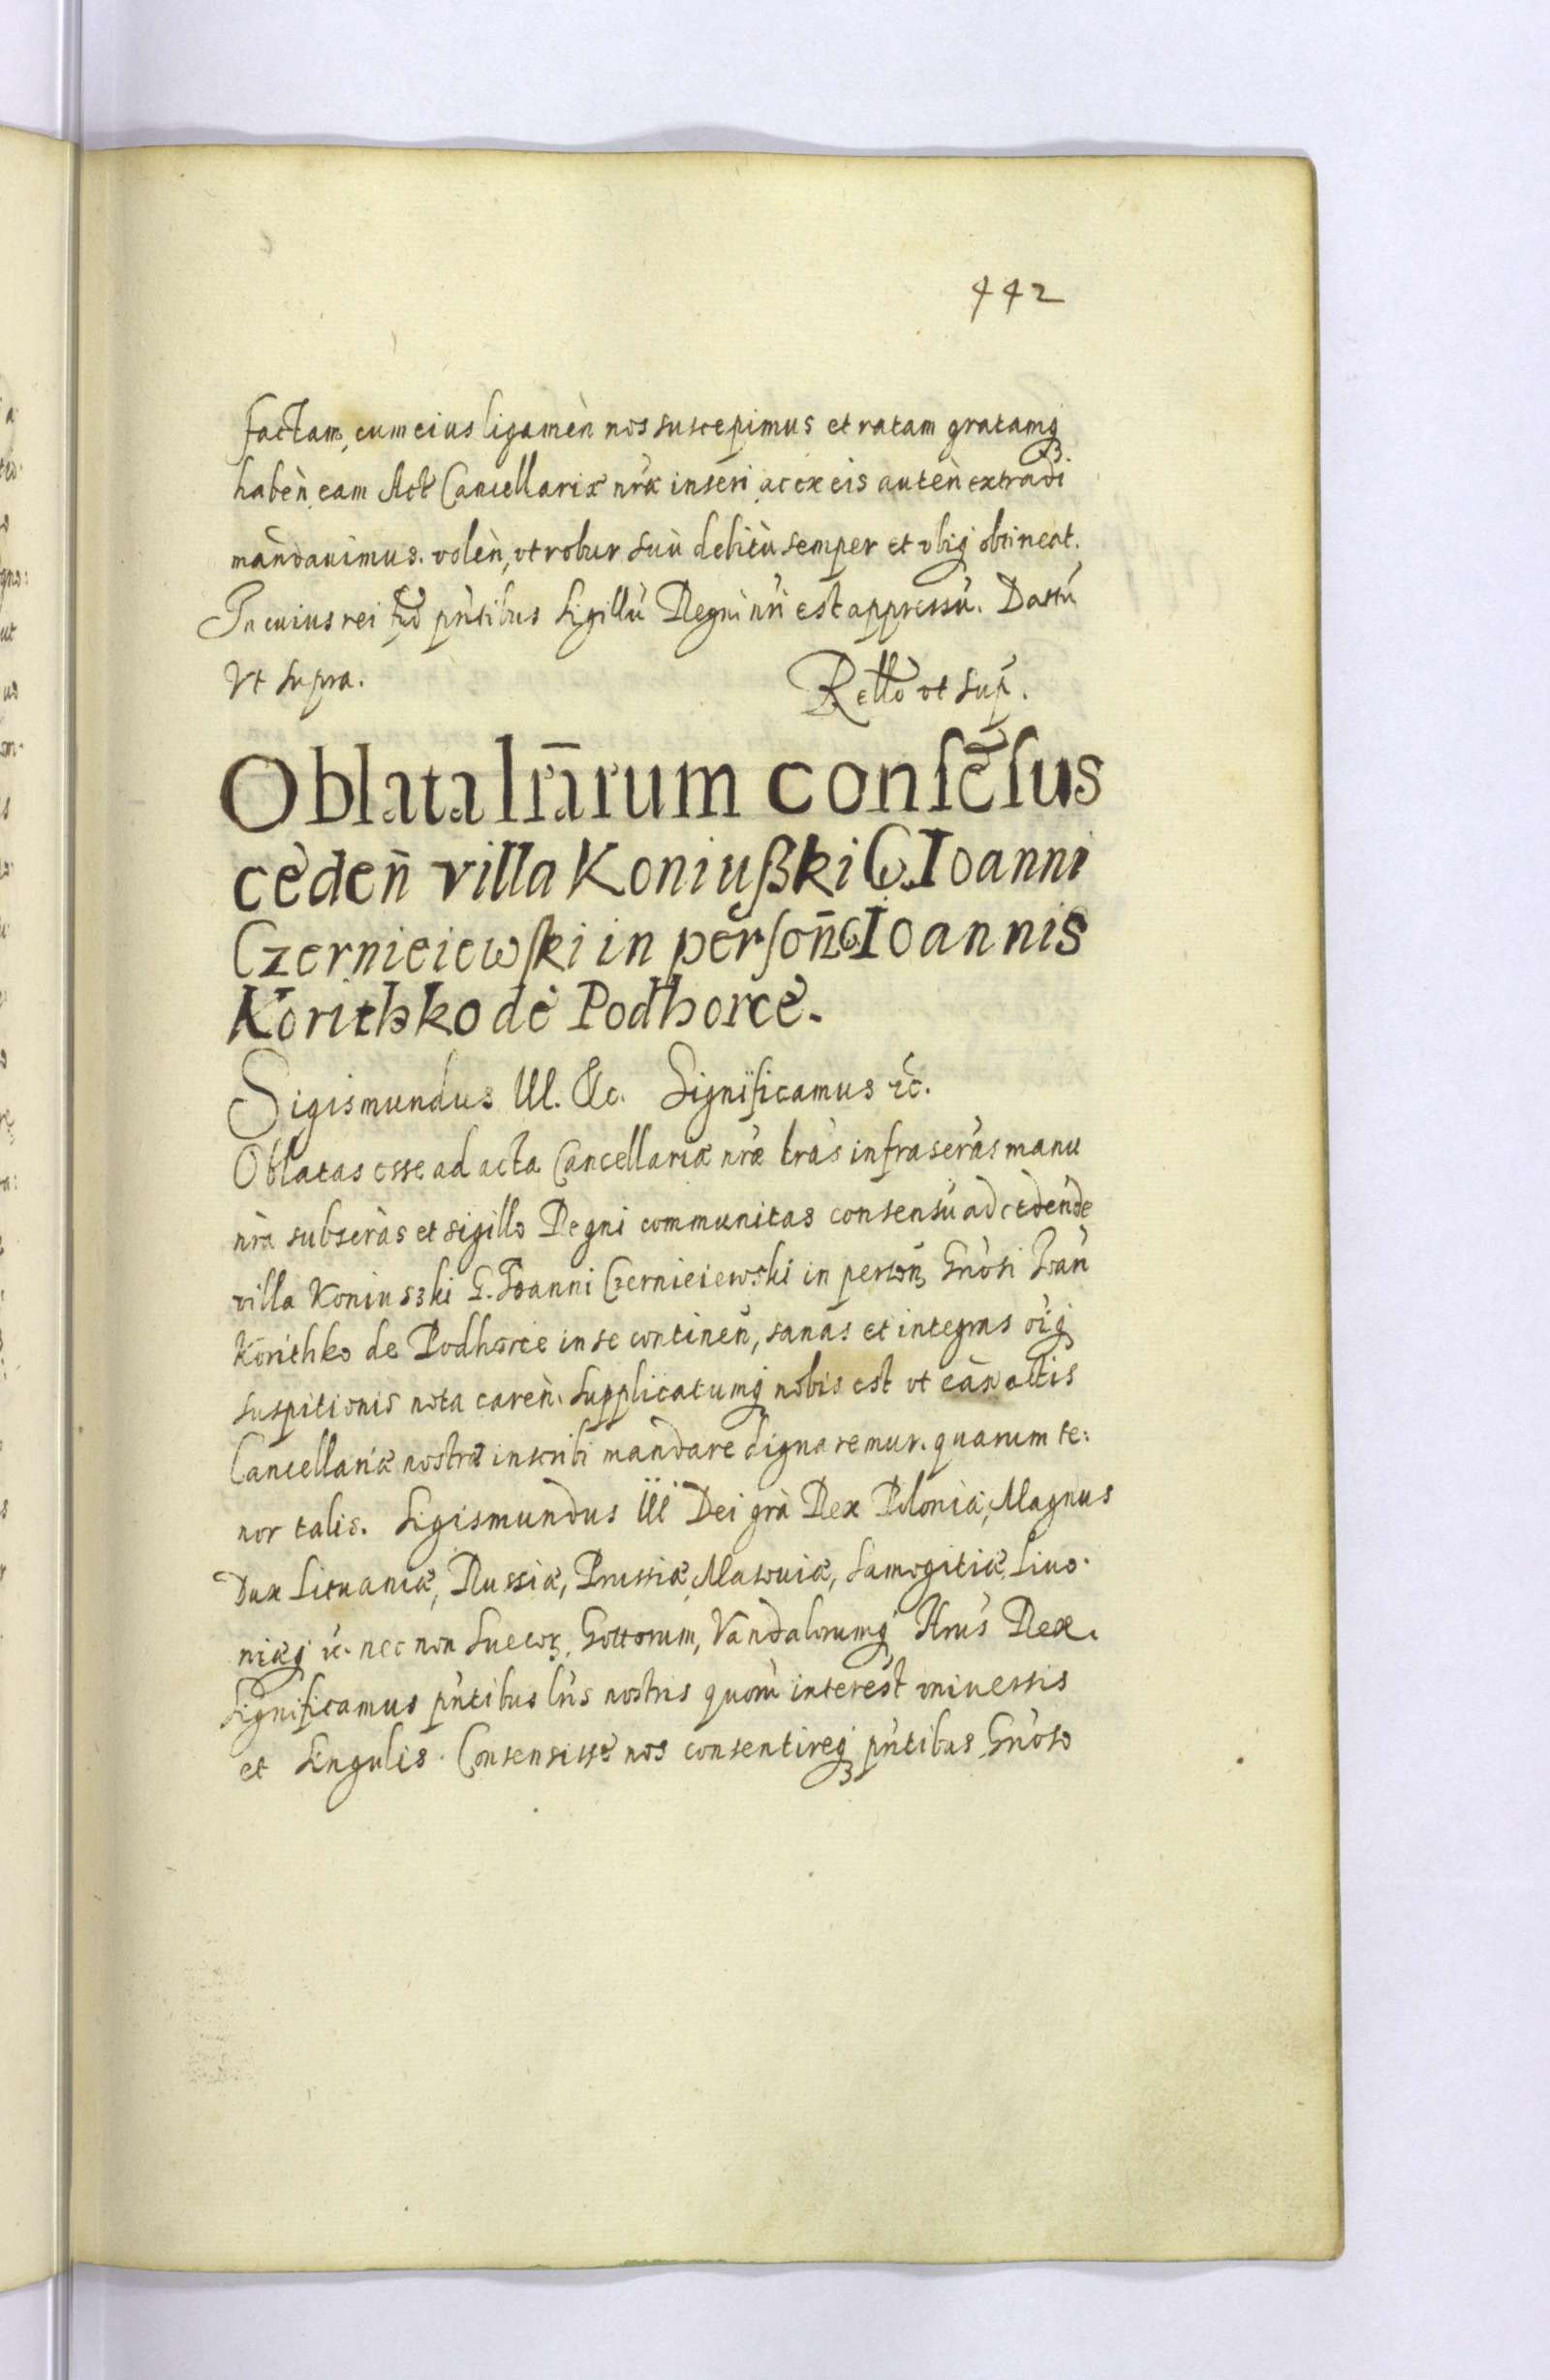 442
factam, cum eius ligamen̄ nos suscepimus et ratam gratamq̨
haben̄, eam Act Cancellariæ nr̄æ inseri, ac ex eis auten̄ extradi
mandauimus. volen̄, vt robur suū debitū semper et vbiq̨ obtineat.
In cuius rei fid pn̄tibus Sigillū Regni nr̄i est appressū. Dattū
Vt supra.
Rello vt sup.
Oblata lrārum consēsus
ceden̄ villa Koniußki G. Ioanni
Czernieiewski in person̄ G Ioannis
Korithko de Podhorce.
Sigismundus III. &c. Significamus ꝛc.
Oblatas esse ad acta Cancellariæ nr̄æ lrās infrascrās manu
nr̄a subscrās et sigillo Regni communitas consensū ad cedende
villa Koniuszki G. Ioanni Czernieiewski in person̄ Gn̄osi Ioan̄
Korithko de Podhorce in se continen̄, sanas et integras oīq̨
suspitionis nota caren̄. Supplicatumq̨ nobis est vt eas actis
Cancellariæ nostræ inscribi mandare dignaremur. quarum te:
nor talis. Sigismundus III Dei grā Rex Poloniæ, Magnus
Dux Lituaniæ, Russiæ, Prussiæ, Masouiæ, Samogitiæ, Liuo.
niæq̨ ꝛc. nec non Suecoꝝ, Gottorum, Vandalorumq̨ Hrus Rex.
Significamus pn̄tibus lr̄is nostris quorū interest vniuersis
et singulis. Consensisse nos consentireq̨ pn̄tibus Gn̄oso